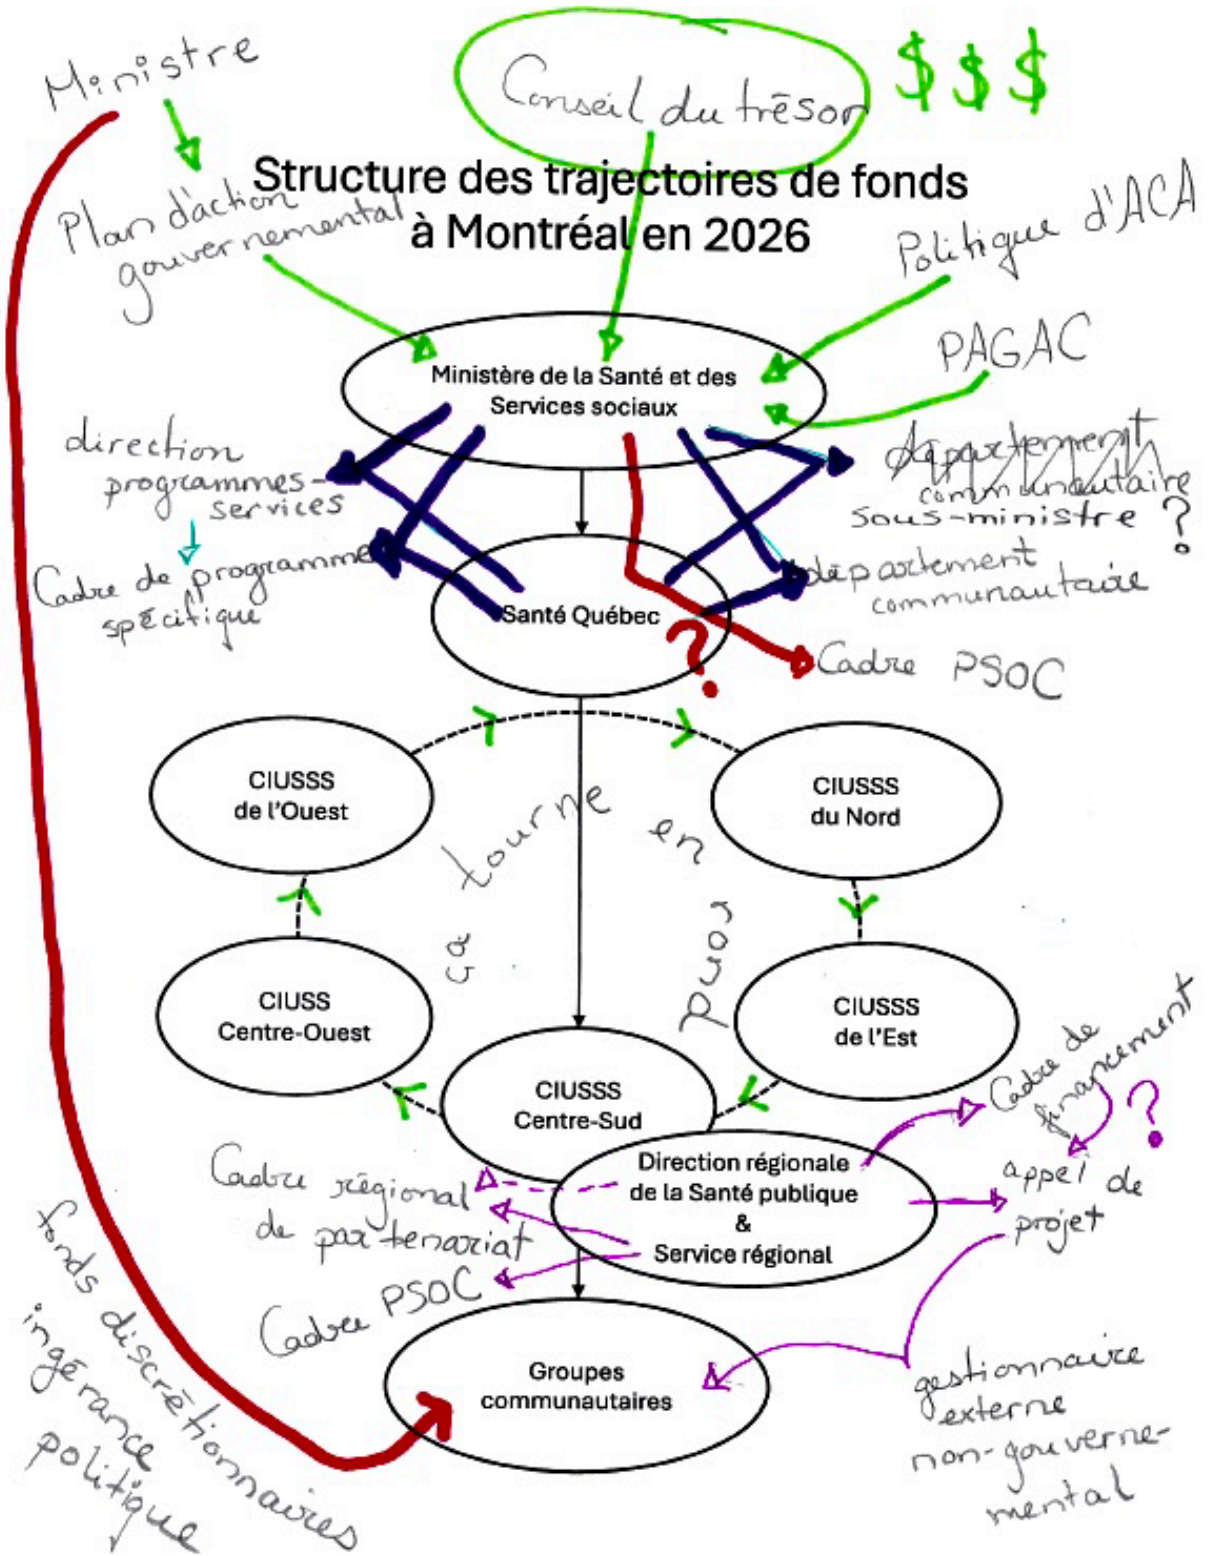 Ministre
Conseil du trésor
$ $ $
Structure des trajectoires de fonds
à Montréal en 2026
Plan d'action
gouvernemental
Politique d'ACA
PAGAC
Ministère de la Santé et des
Services sociaux
direction
programmes-
services
Cadre de programme
spécifique
département
communautaire
sous-ministre ?
département
communautaire
Santé Québec
?
Cadre PSOC
CIUSSS
de l'Ouest
CIUSSS
du Nord
ça tourne en rond
CIUSS
Centre-Ouest
CIUSSS
de l'Est
CIUSSS
Centre-Sud
Cadre de
financement
?
Direction régionale
de la Santé publique
&
Service régional
Cadre régional
de partenariat
Cadre PSOC
appel de
projet
Groupes
communautaires
gestionnaire
externe
non-gouverne-
mental
fonds discrétionnaires
ingérance
politique